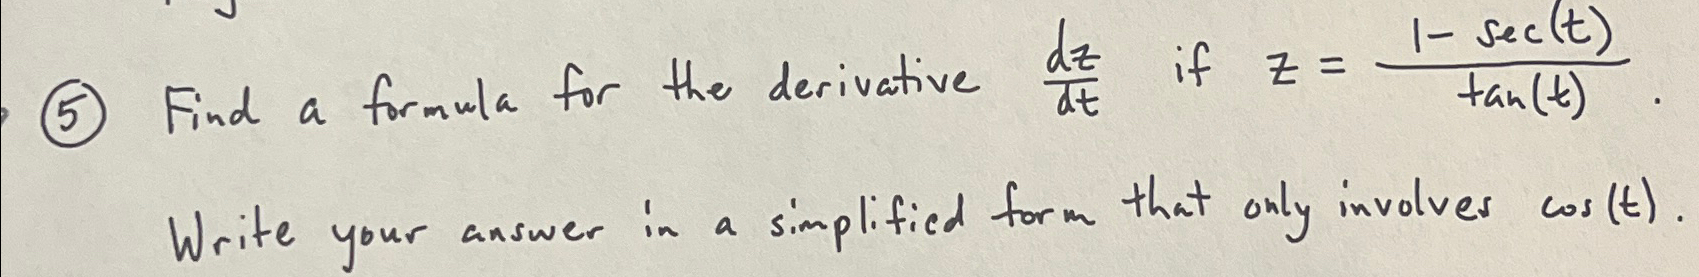 ⑤ Find a formula for the derivative dz/dt if z = (1 - sec(t))/tan(t).
Write your answer in a simplified form that only involves cos(t).